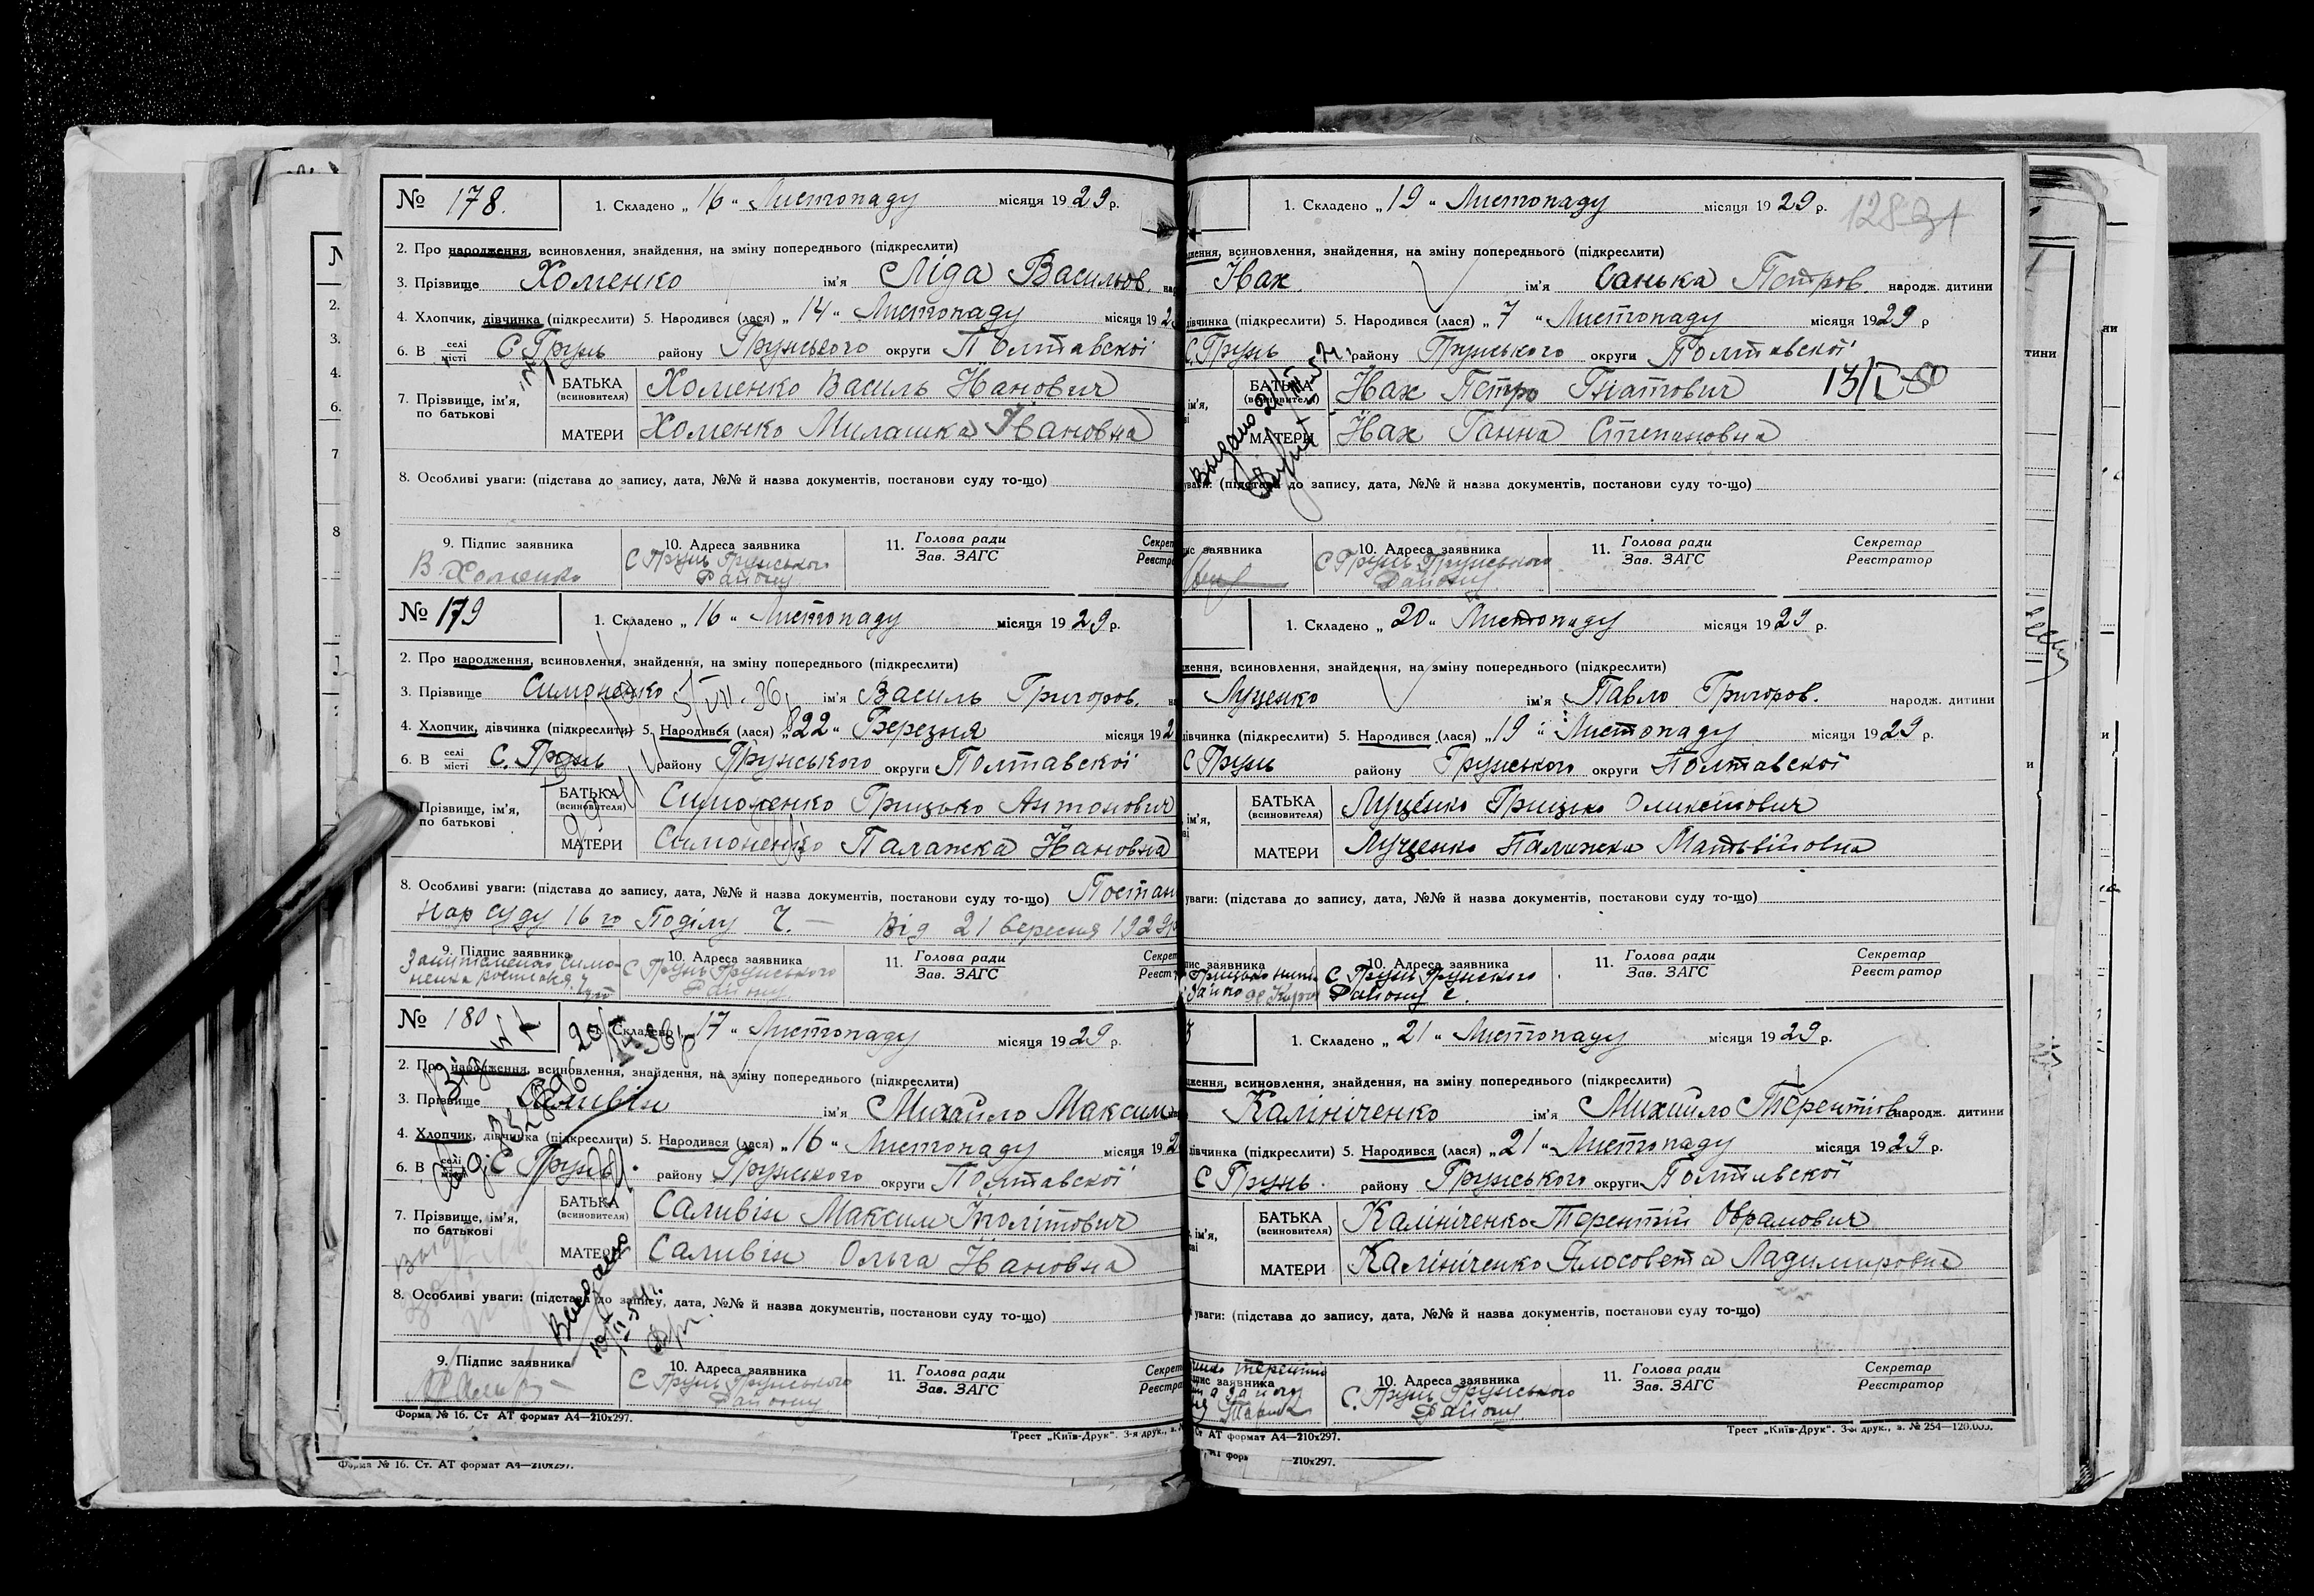 № 178.
1. Складено „16“ Листопаду місяця 1929 р.
2. Про народження, всиновлення, знайдення, на зміну попереднього (підкреслити)
3. Прізвище Хоменко ім'я Ліда Васильов.
4. Хлопчик, дівчинка (підкреслити) 5. Народився (лася) „14“ Листопаду місяця 192
6. В селі місті С Грунь району Грунського округи Полтавської
7. Прізвище, ім'я, по батькові
БАТЬКА (всиновителя) Хоменко Василь Іванович
МАТЕРИ Хоменко Милашка Івановна
8. Особливі уваги: (підстава до запису, дата, №№ й назва документів, постанови суду то-що)
9. Підпис заявника В Хоменко
10. Адреса заявника С Грунь Грунського Району
11. Голова ради Зав. ЗАГС
№ 179
1. Складено „16“ Листопаду місяця 1929 р.
2. Про народження, всиновлення, знайдення, на зміну попереднього (підкреслити)
3. Прізвище Симоненко ім'я Василь Григоров.
4. Хлопчик, дівчинка (підкреслити) 5. Народився (лася) „22“ Березня місяця 192
6. В селі місті С. Грунь району Грунського округи Полтавської
Прізвище, ім'я, по батькові
БАТЬКА (всиновителя) Симоненко Грицько Антонович
МАТЕРИ Симоненко Палажка Івановна
8. Особливі уваги: (підстава до запису, дата, №№ й назва документів, постанови суду то-що) Постан
Нар суду 16го Поділу Від 21 вересня 1929р
9. Підпис заявника
10. Адреса заявника С Грунь Грунського Району
11. Голова ради Зав. ЗАГС
№ 180
1. Складено „17“ Листопаду місяця 1929 р.
2. Про народження, всиновлення, знайдення, на зміну попереднього (підкреслити)
3. Прізвище Саливін ім'я Михайло Максим
4. Хлопчик, дівчинка (підкреслити) 5. Народився (лася) „16“ Листопаду місяця 192
6. В селі С Грунь району Грунського округи Полтавської
7. Прізвище, ім'я, по батькові
БАТЬКА (всиновителя) Саливін Максим Іполітович
МАТЕРИ Саливін Ольга Івановна
Видано
8. Особливі уваги: (підстава до запису, дата, №№ й назва документів, постанови суду то-що)
9. Підпис заявника
10. Адреса заявника С Грунь Грунського Району
11. Голова ради Зав. ЗАГС
Форма № 16. Ст АТ формат А4—210х297.
Трест „Київ-Друк“. 3-я друк.,
Форма № 16. Ст. АТ формат А4—210х297.
1. Складено „19“ Листопаду місяця 1929 р.
всиновлення, знайдення, на зміну попереднього (підкреслити)
Іван. ім'я Санька Петров. народж. дитини
дівчинка (підкреслити) 5. Народився (лася) „7“ Листопаду місяця 1929 р
С. Грунь району Грунського округи Полтавської
13/I-50
БАТЬКА (всиновителя) Іван Петро Гнатович
МАТЕРИ Іван Ганна Степановна
уваги: (підстава до запису, дата, №№ й назва документів, постанови суду то-що)
заявника
10. Адреса заявника С Грунь Грунського Району
11. Голова ради Зав. ЗАГС
Секретар Реєстратор
1. Складено „20“ Листопаду місяця 1929 р.
всиновлення, знайдення, на зміну попереднього (підкреслити)
Луценко ім'я Павло Григоров. народж. дитини
дівчинка (підкреслити) 5. Народився (лася) „19“ Листопаду місяця 1929 р.
С Грунь району Грунського округи Полтавської
БАТЬКА (всиновителя) Луценко Грицько Оликсійович
МАТЕРИ Луценко Палажка Матвійовна
уваги: (підстава до запису, дата, №№ й назва документів, постанови суду то-що)
заявника
10. Адреса заявника С Грунь Грунского Району
11. Голова ради Зав. ЗАГС
Секретар Реєстратор
1. Складено „21“ Листопаду місяця 1929 р.
всиновлення, знайдення, на зміну попереднього (підкреслити)
Калініченко ім'я Михайло Терентіїв народж. дитини
дівчинка (підкреслити) 5. Народився (лася) „21“ Листопаду місяця 1929 р.
С Грунь. району Грунського округи Полтавської
БАТЬКА (всиновителя) Калініченко Терентій Оврамович
МАТЕРИ Калініченко Ялосовета Ладимировна
уваги: (підстава до запису, дата, №№ й назва документів, постанови суду то-що)
заявника
10. Адреса заявника С. Грунь Грунського Району
11. Голова ради Зав. ЗАГС
Секретар Реєстратор
Ст АТ формат А4—210х297.
Трест „Київ-Друк“. 3-я друк., з. № 254—120.000.
—210х297.